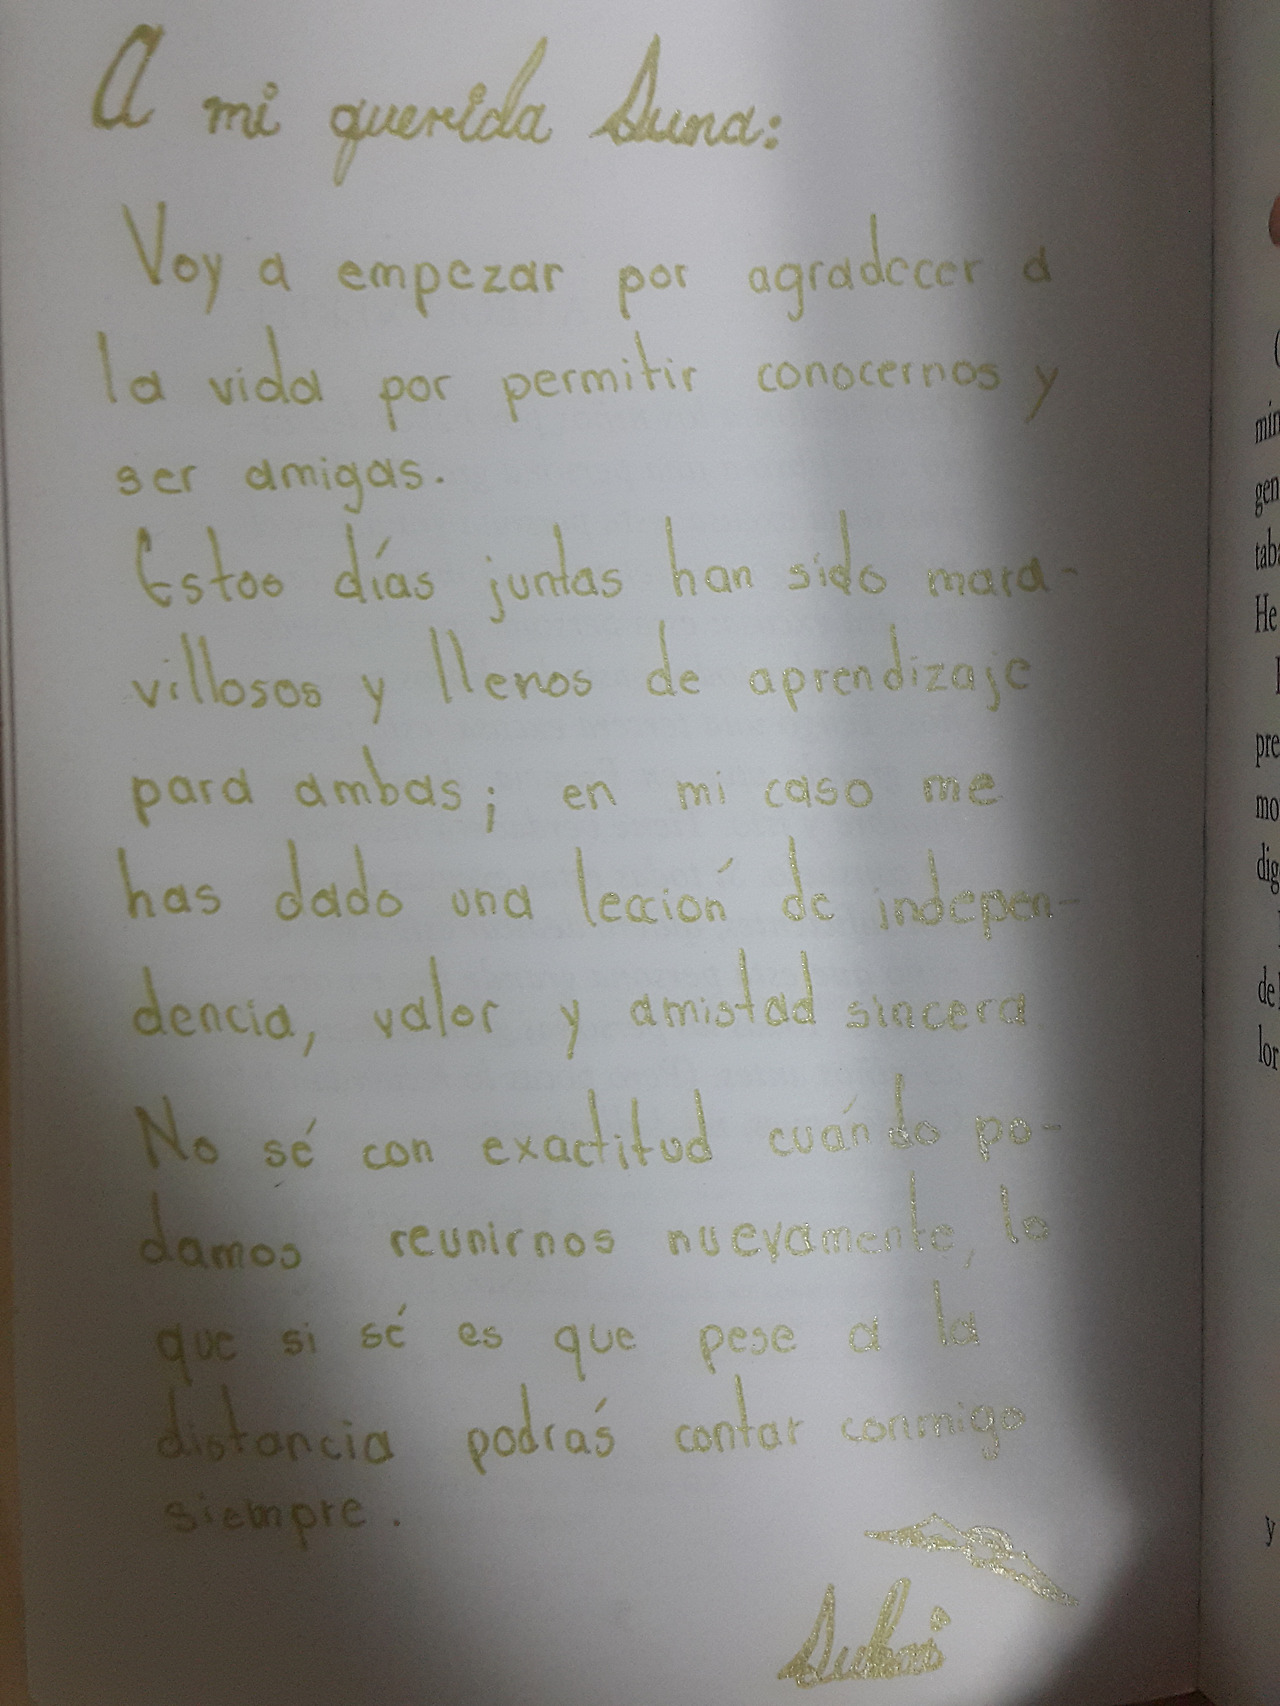 A mi querida Duna:
Voy a empezar por agradecer a
la vida por permitir conocernos y
ser amigas.
Estos días juntas han sido mara-
villosos y llenos de aprendizaje
para ambas; en mi caso me
has dado una lección de indepen-
dencia, valor y amistad sincera
No sé con exactitud cuándo po-
damos reunirnos nuevamente, lo
que si sé es que pese a la
distancia podrás contar conmigo
siempre.
min
gen
tab
He
pre
mo
dig
de
lor
y